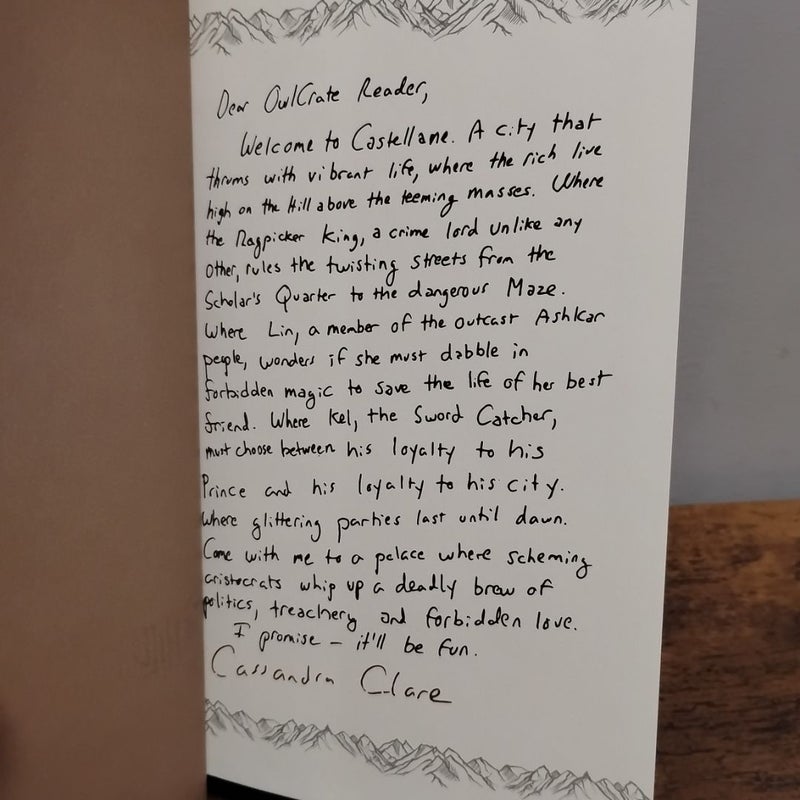 Dear OwlCrate Reader,
Welcome to Castellane. A city that
thrums with vibrant life, where the rich live
high on the Hill above the teeming masses. Where
the Ragpicker King, a crime lord unlike any
other, rules the twisting streets from the
Scholar's Quarter to the dangerous Maze.
Where Lin, a member of the outcast Ashkar
people, wonders if she must dabble in
forbidden magic to save the life of her best
friend. Where Kel, the Sword Catcher,
must choose between his loyalty to his
Prince and his loyalty to his city.
Where glittering parties last until dawn.
Come with me to a palace where scheming
aristocrats whip up a deadly brew of
politics, treachery and forbidden love.
I promise – it'll be fun.
Cassandra Clare